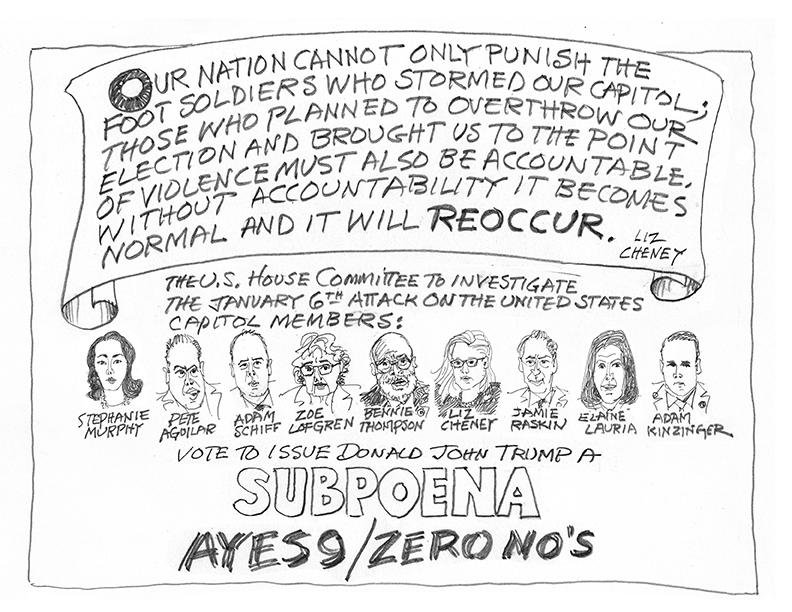 OUR NATION CANNOT ONLY PUNISH THE
FOOT SOLDIERS WHO STORMED OUR CAPITOL;
THOSE WHO PLANNED TO OVERTHROW OUR
ELECTION AND BROUGHT US TO THE POINT
OF VIOLENCE MUST ALSO BE ACCOUNTABLE.
WITHOUT ACCOUNTABILITY IT BECOMES
NORMAL AND IT WILL REOCCUR.
LIZ
CHENEY
THE U.S. HOUSE COMMITTEE TO INVESTIGATE
THE JANUARY 6TH ATTACK ON THE UNITED STATES
CAPITOL MEMBERS:
STEPHANIE
MURPHY
PETE
AGUILAR
ADAM
SCHIFF
ZOE
LOFGREN
BENNIE
THOMPSON
LIZ
CHENEY
JAMIE
RASKIN
ELAINE
LAURIA
ADAM
KINZINGER
VOTE TO ISSUE DONALD JOHN TRUMP A
SUBPOENA
AYES 9/ZERO NO'S